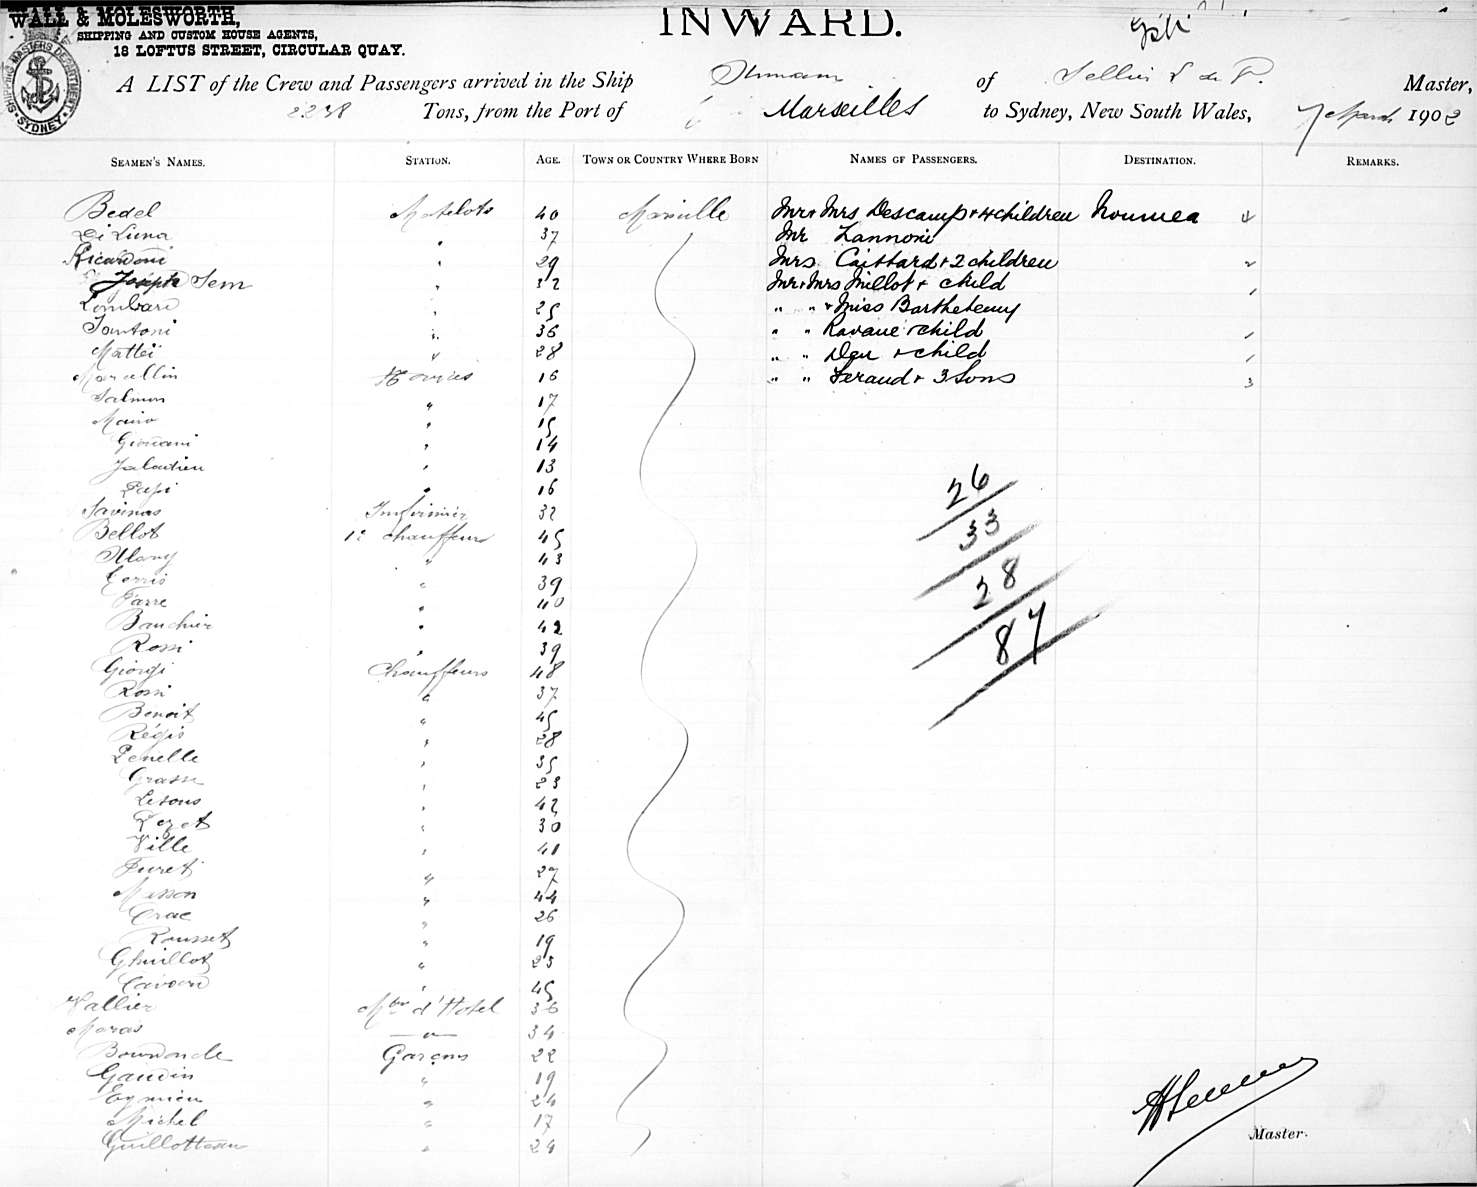 WALL & MOLESWORTH,
SHIPPING AND CUSTOM HOUSE AGENTS,
18 LOFTUS STREET, CIRCULAR QUAY.
SHIPPING MASTERS DEPARTMENT SYDNEY
INWARD.
A LIST of the Crew and Passengers arrived in the Ship of Master,
2238 Tons, from the Port of Marseilles to Sydney, New South Wales, 7 March 1902
SEAMEN'S NAMES. STATION. AGE. TOWN OR COUNTRY WHERE BORN NAMES OF PASSENGERS. DESTINATION. REMARKS.
Bedel Matelots 40 Marseille Mr & Mrs Descamp & 4 children Noumea 4
Di Luna " 37 Mr Zannoni
Ricardoni " 29 Mrs Caissard & 2 children 2
Joseph Sem " 32 Mr & Mrs Millot & child 1
Lombard " 25 " " & Miss Barthelemy
Santoni " 36 " " Ravane & child 1
Mattei " 28 " " Deu & child 1
Marcellin Novices 16 " " Feraud & 3 Sons 3
Salmon " 17
Mairo " 15
Giovani " 14
" 13
Papi " 16
Savinas Infirmier 32
Bellot 1e chauffeur 45
Many " 43
Gerris " 39
Farre " 40
Bauchier " 42
Rossi " 39
Giorgi Chauffeurs 48
Rossi " 37
Benoit " 45
Régis " 28
Penelle " 35
Grasse " 23
Lesous " 42
Pezet " 30
Ville " 41
Furet " 27
Masson " 44
Crac " 26
Rousset " 19
Ghuillot " 23
" 45
Vallier Mtre d'Hotel 36
Moras " 34
Garçons 22
Gaudin " 19
Eymieu " 24
Michel " 17
Guillotteau " 24
26
33
28
87
Master.